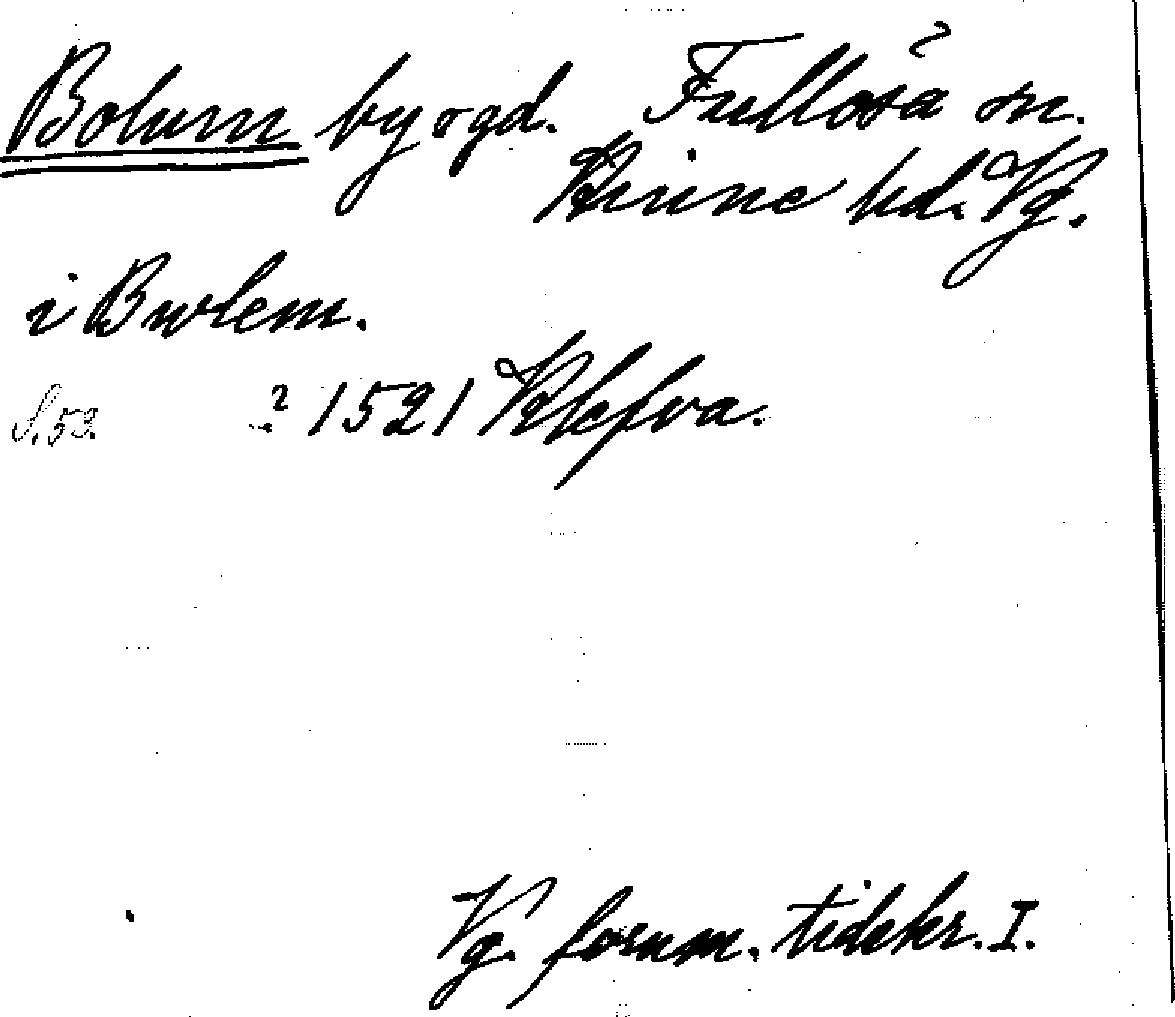 Bolum by o gd. Fullösa sn.
Kinne hd. Vg.
i Bwlem.
S. 52. ? 1521 Klefva.
Vg. fornm. tidskr. I.